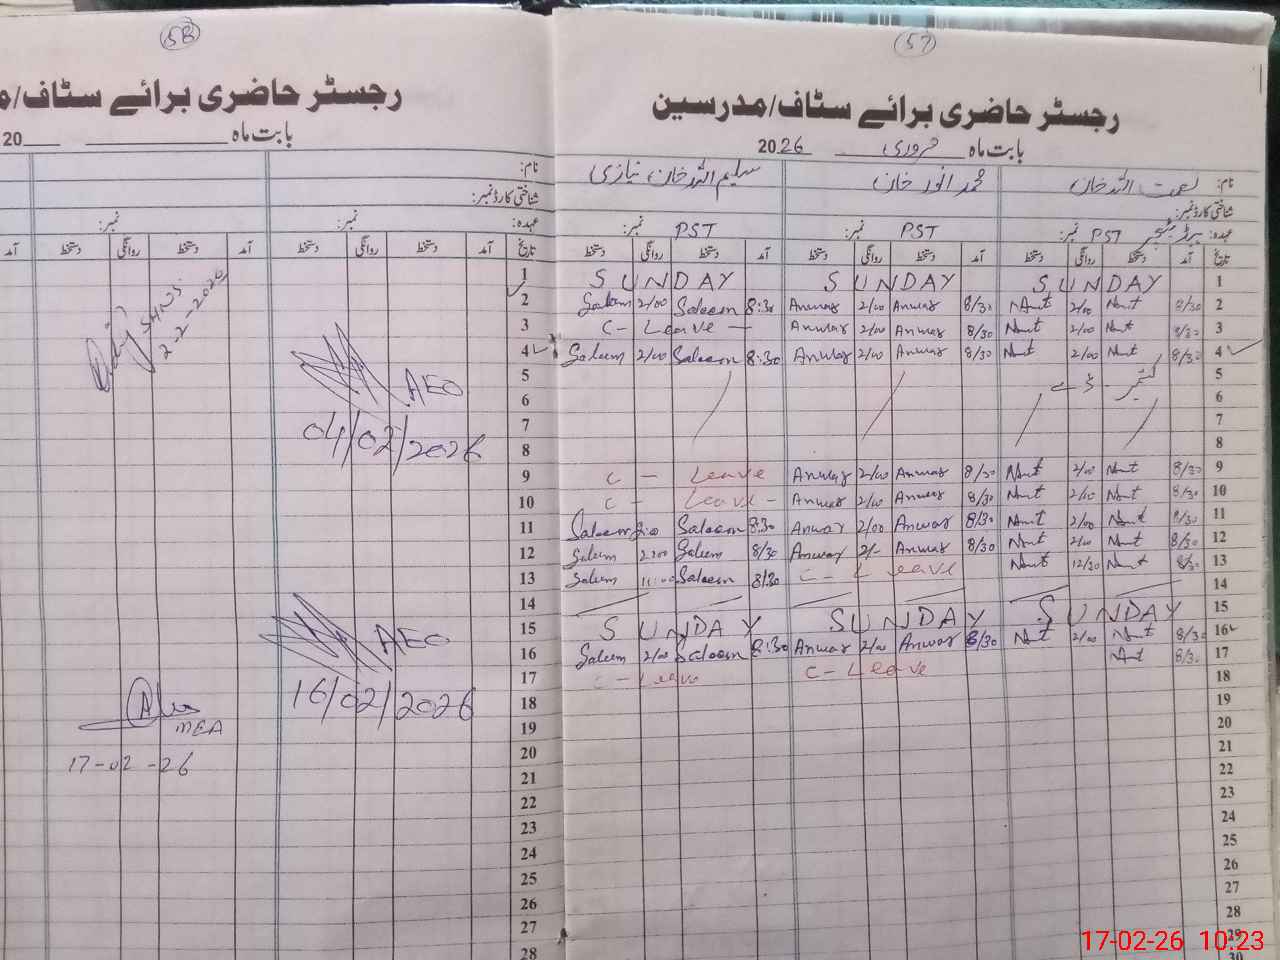 58
رجسٹر حاضری برائے سٹاف/
بابت ماہ 20
نام:
شناختی کارڈ نمبر:
عہدہ: نمبر: نمبر:
تاریخ آمد دستخط روانگی دستخط آمد دستخط روانگی دستخط آمد
1
2
3
4
5
6
7
8
9
10
11
12
13
14
15
16
17
18
19
20
21
22
23
24
25
26
27
28
2-2-2026
AEO
04/02/2026
AEO
16/02/2026
MEA
17-02-26
57
رجسٹر حاضری برائے سٹاف/مدرسین
بابت ماہ فروری 2026
نام: نعمت اللہ خان محمد انور خان سلیم اللہ خان نیازی
شناختی کارڈ نمبر:
عہدہ: نمبر: PST نمبر: PST نمبر: PST
تاریخ آمد دستخط روانگی دستخط آمد دستخط روانگی دستخط آمد دستخط روانگی دستخط
SUNDAY SUNDAY SUNDAY 1
Saleem 2/00 Saleem 8:30 Anwar 2/00 Anwar 8/30 Namt 2/00 Namt 8/30 2
C - Leave - Anwar 2/00 Anwar 8/30 Namt 2/00 Namt 8/30 3
Saleem 2/00 Saleem 8:30 Anwar 2/00 Anwar 8/30 Namt 2/00 Namt 8/30 4
5
کشمیر ڈے 6
7
8
C - Leave Anwar 2/00 Anwar 8/30 Namt 2/00 Namt 8/30 9
C - Leave - Anwar 2/00 Anwar 8/30 Namt 2/00 Namt 8/30 10
Saleem 2:00 Saleem 8:30 Anwar 2/00 Anwar 8/30 Namt 2/00 Namt 8/30 11
Saleem 2:00 Saleem 8/30 Anwar 2/- Anwar 8/30 Namt 2/00 Namt 8/30 12
Saleem Saleem 8/30 C - Leave Namt 12/30 Namt 8/30 13
14
SUNDAY SUNDAY SUNDAY 15
Saleem 2/00 Saleem 8:30 Anwar 2/00 Anwar 8/30 Namt 2/00 Namt 8/30 16
C - Leave C - Leave Namt 8/30 17
18
19
20
21
22
23
24
25
26
27
28
29
30
17-02-26 10:23